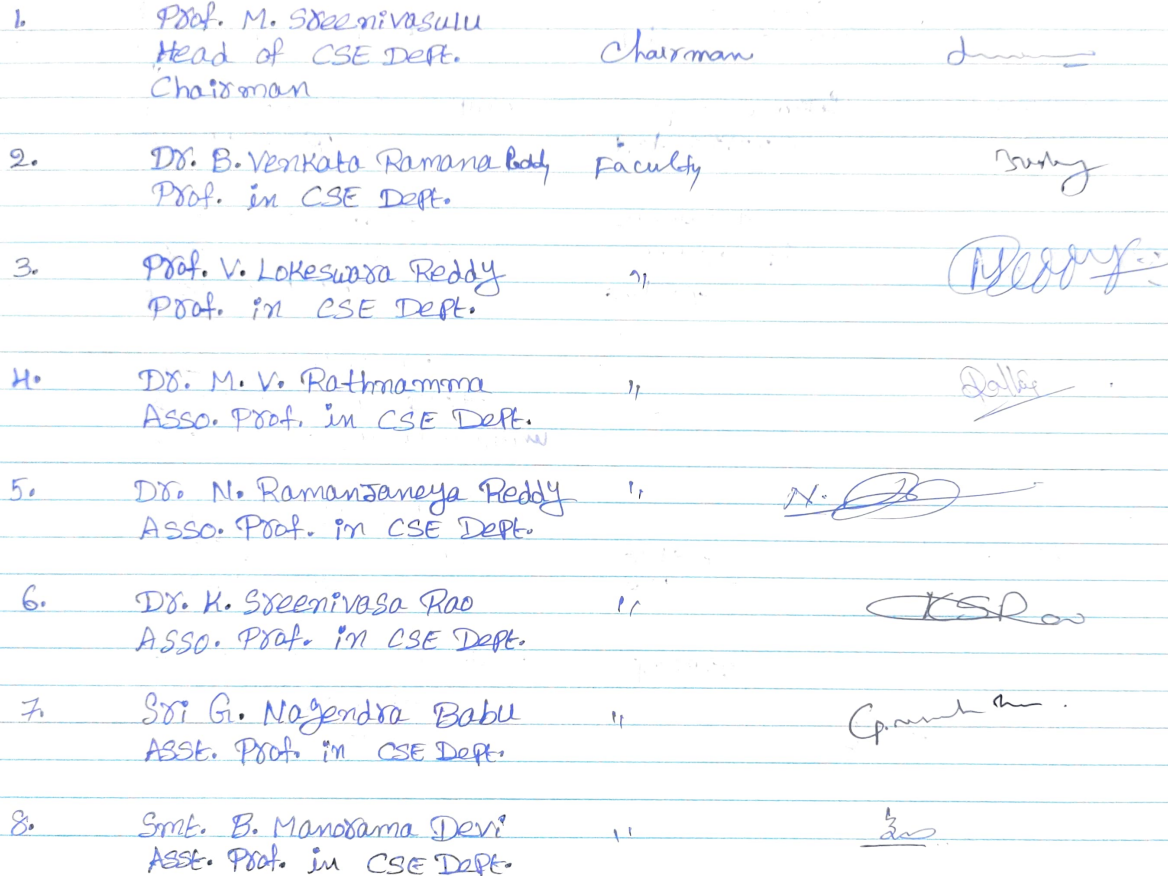 1. Prof. M. Sreenivasulu
Head of CSE Dept. Chairman
Chairman
2. Dr. B. Venkata Ramana Reddy Faculty
Prof. in CSE Dept.
3. Prof. V. Lokeswara Reddy "
Prof. in CSE Dept.
4. Dr. M. V. Rathnamma "
Asso. Prof. in CSE Dept.
5. Dr. N. Ramanjaneya Reddy " N.
Asso. Prof. in CSE Dept.
6. Dr. K. Sreenivasa Rao " KSRao
Asso. Prof. in CSE Dept.
7. Sri G. Nagendra Babu "
Asst. Prof. in CSE Dept.
8. Smt. B. Manorama Devi "
Asst. Prof. in CSE Dept.